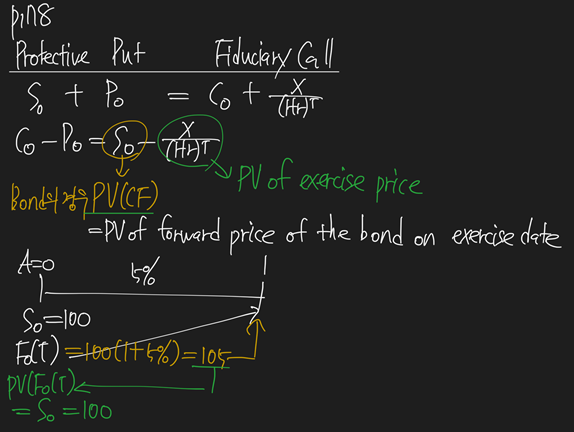 p.118
Protective Put Fiduciary Call
S₀ + P₀ = C₀ + X/(1+r)ᵀ
C₀ - P₀ = S₀ - X/(1+r)ᵀ
PV of exercise price
Bond의 경우 PV(CF)
=PV of forward price of the bond on exercise date
A=0 5% 1
S₀=100
F₀(T) =100(1+5%)=105
PV(F₀(T)
= S₀ = 100